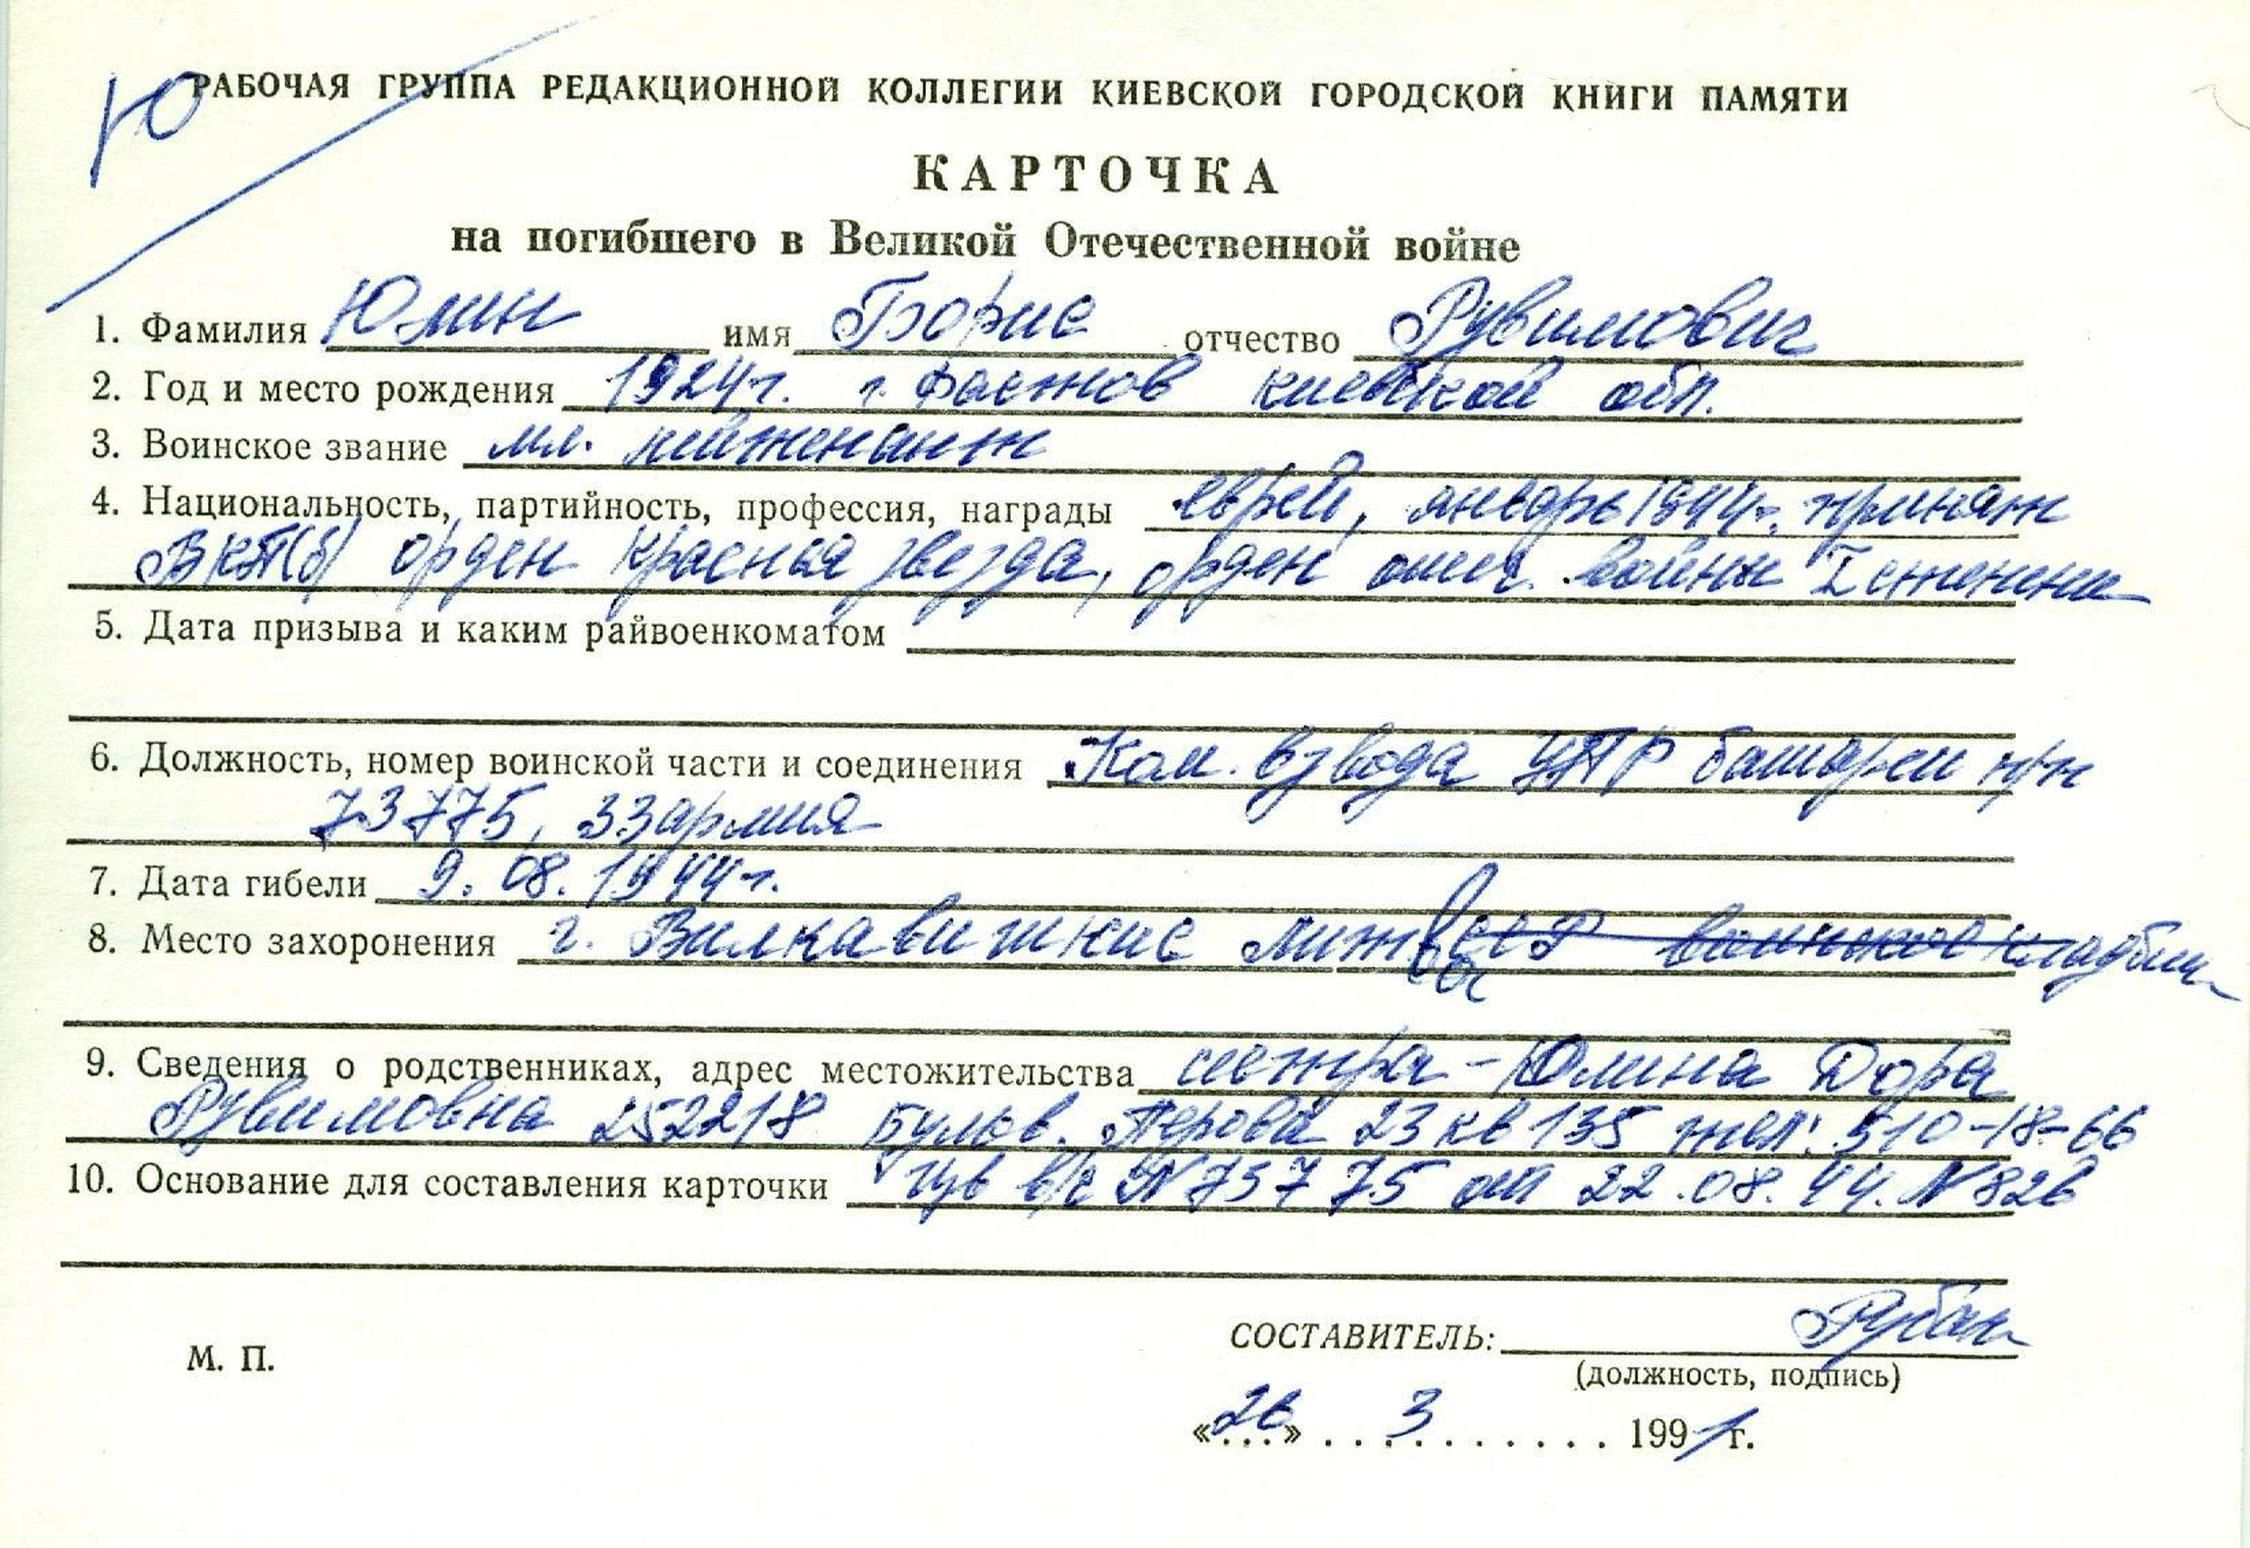 Ю
РАБОЧАЯ ГРУППА РЕДАКЦИОННОЙ КОЛЛЕГИИ КИЕВСКОЙ ГОРОДСКОЙ КНИГИ ПАМЯТИ
КАРТОЧКА
на погибшего в Великой Отечественной войне
1. Фамилия Юлин имя Борис отчество Рувимович
2. Год и место рождения 1924г. г. Фастов Киевской обл.
3. Воинское звание мл. лейтенант
4. Национальность, партийность, профессия, награды еврей, январь 1944г. принят
ВКП(б) орден Красная звезда, орден отеч. войны I степени
5. Дата призыва и каким райвоенкоматом
6. Должность, номер воинской части и соединения Ком. взвода батареи п/п
73775, 33 армия
7. Дата гибели 9. 08. 1944г.
8. Место захоронения г. Вилкавишкис Литвы воинское кладбищ
9. Сведения о родственниках, адрес местожительства сестра - Юлина Дора
Рувимовна 252218 Бульв. Перова 23 кв 135 тел: 510-18-66
10. Основание для составления карточки в/ч N73775 от 22.08.44. N826
СОСТАВИТЕЛЬ: Рубан
М. П.
(должность, подпись)
«26» 3 .......... 1991г.